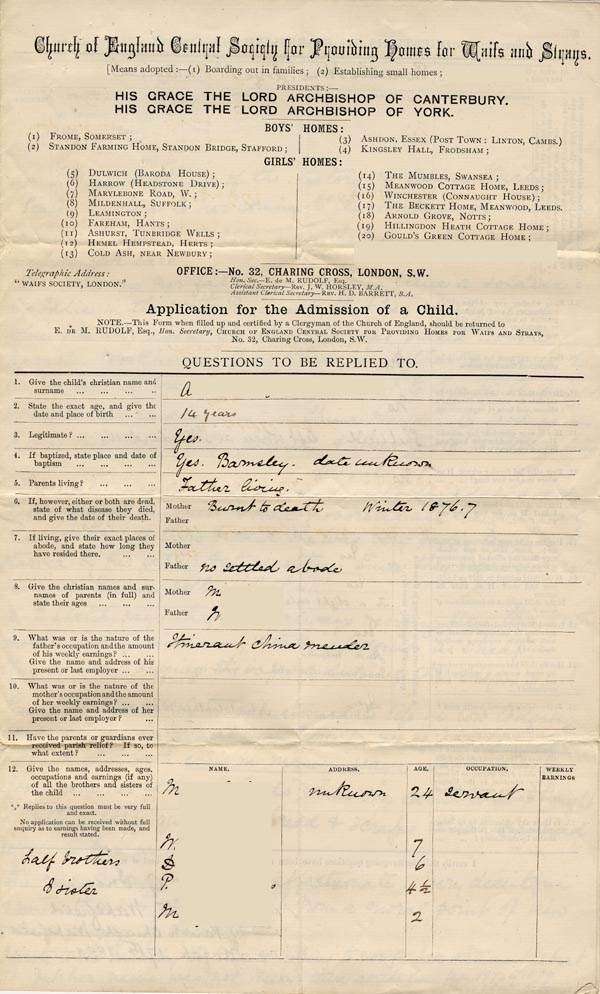 Church of England Central Society for Providing Homes for Waifs and Strays.
[Means adopted:—(1) Boarding out in families; (2) Establishing small homes;
PRESIDENTS:—
HIS GRACE THE LORD ARCHBISHOP OF CANTERBURY.
HIS GRACE THE LORD ARCHBISHOP OF YORK.
BOYS' HOMES:
(1) FROME, SOMERSET;
(2) STANDON FARMING HOME, STANDON BRIDGE, STAFFORD;
(3) ASHDON, ESSEX (POST TOWN: LINTON, CAMBS.)
(4) KINGSLEY HALL, FRODSHAM;
GIRLS' HOMES:
(5) DULWICH (BARODA HOUSE);
(6) HARROW (HEADSTONE DRIVE);
(7) MARYLEBONE ROAD, W.;
(8) MILDENHALL, SUFFOLK;
(9) LEAMINGTON;
(10) FAREHAM, HANTS;
(11) ASHURST, TUNBRIDGE WELLS;
(12) HEMEL HEMPSTEAD, HERTS;
(13) COLD ASH, NEAR NEWBURY;
(14) THE MUMBLES, SWANSEA;
(15) MEANWOOD COTTAGE HOME, LEEDS;
(16) WINCHESTER (CONNAUGHT HOUSE);
(17) THE BECKETT HOME, MEANWOOD, LEEDS.
(18) ARNOLD GROVE, NOTTS;
(19) HILLINGDON HEATH COTTAGE HOME;
(20) GOULD'S GREEN COTTAGE HOME;
Telegraphic Address:
"WAIFS SOCIETY, LONDON."
OFFICE:—No. 32, CHARING CROSS, LONDON, S.W.
Hon. Sec.—E. de M. RUDOLF, Esq.
Clerical Secretary—Rev. J. W. HORSLEY, M.A.
Assistant Clerical Secretary—Rev. H. D. BARRETT, B.A.
Application for the Admission of a Child.
NOTE.—This Form when filled up and certified by a Clergyman of the Church of England, should be returned to
E. DE M. RUDOLF, Esq., Hon. Secretary, CHURCH OF ENGLAND CENTRAL SOCIETY FOR PROVIDING HOMES FOR WAIFS AND STRAYS,
No. 32, Charing Cross, London, S.W.
QUESTIONS TO BE REPLIED TO.
1. Give the child's christian name and
surname ... ... ... ..
A
2. State the exact age, and give the
date and place of birth ... ...
14 years
3. Legitimate? ... ... ... ...
Yes.
4. If baptized, state place and date of
baptism ... ... ... ...
Yes. Barnsley. date unknown
5. Parents living? ... ... ...
Father living.
6. If, however, either or both are dead,
state of what disease they died,
and give the date of their death.
Mother Burnt to death Winter 1876.7
Father
7. If living, give their exact places of
abode, and state how long they
have resided there. ... ...
Mother
Father no settled abode
8. Give the christian names and sur-
names of parents (in full) and
state their ages ... ... ...
Mother M
Father
9. What was or is the nature of the
father's occupation and the amount
of his weekly earnings? ... ...
Give the name and address of his
present or last employer ... ...
Itinerant china mender
10. What was or is the nature of the
mother's occupation and the amount
of her weekly earnings? ... ...
Give the name and address of her
present or last employer? ...
11. Have the parents or guardians ever
received parish relief? If so, to
what extent? ... ... ...
12. Give the names, addresses, ages,
occupations and earnings (if any)
of all the brothers and sisters of
the child ... ... ... ...
*,* Replies to this question must be very full
and exact.
No application can be received without full
enquiry as to earnings having been made, and
result stated.
NAME. ADDRESS. AGE. OCCUPATION. WEEKLY EARNINGS
M unknown 24 servant
W. 7
half brothers 6
& sister P. 4½
M 2